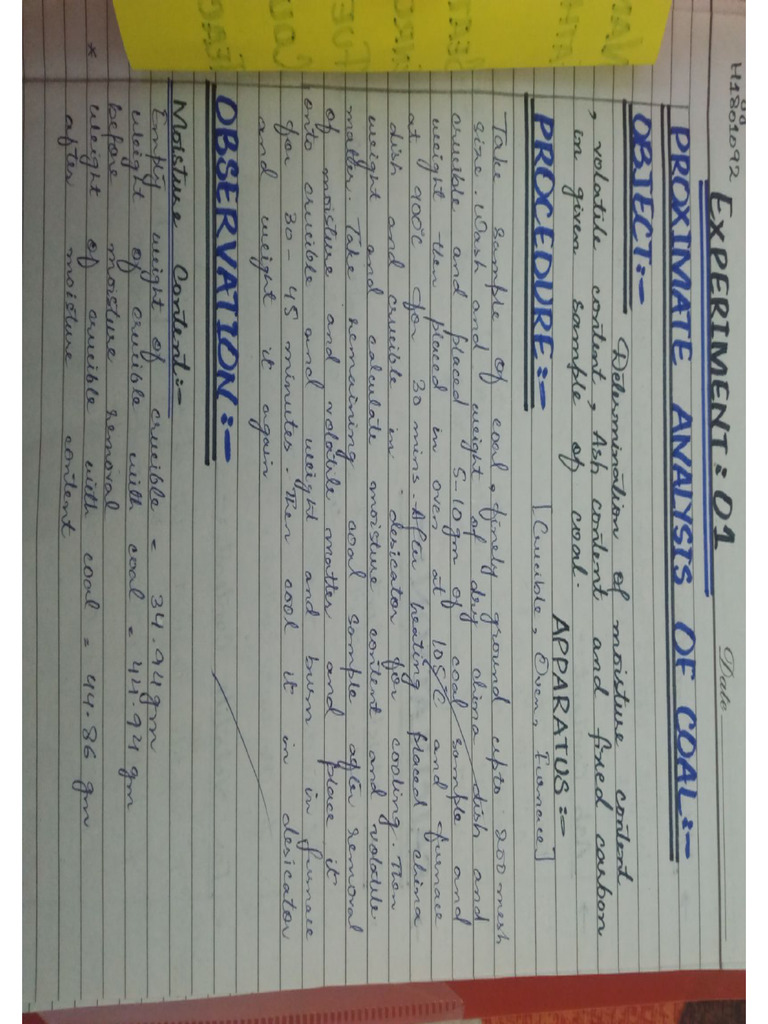 H1801092
Date
EXPERIMENT: 01
PROXIMATE ANALYSIS OF COAL:-
OBJECT:-
Determination of moisture content
, volatile content, Ash content and fixed carbon
in given sample of coal.
APPARATUS:-
PROCEDURE:-
[Crucible, Oven, Furnace]
Take sample of coal, finely ground upto 200 mesh
size. Wash and weight of dry china dish and
crucible and placed 5-10gm of coal sample and
weight then placed in oven at 105°C and furnace
at 900°C for 30 mins. After heating placed china
dish and crucible in desicator for cooling. Then
weight and calculate moisture content and volatile
matter. Take remaining coal sample after removal
of moisture and volatile matter and place it
onto crucible and weight and burn in furnace
for 30-45 minutes. Then cool it in desicator
and weight it again
OBSERVATION:-
Moisture Content:-
Empty weight of crucible = 34.94gm
weight of crucible with coal = 44.94 gm
before moisture removal
* weight of crucible with coal = 44.86 gm
after moisture content